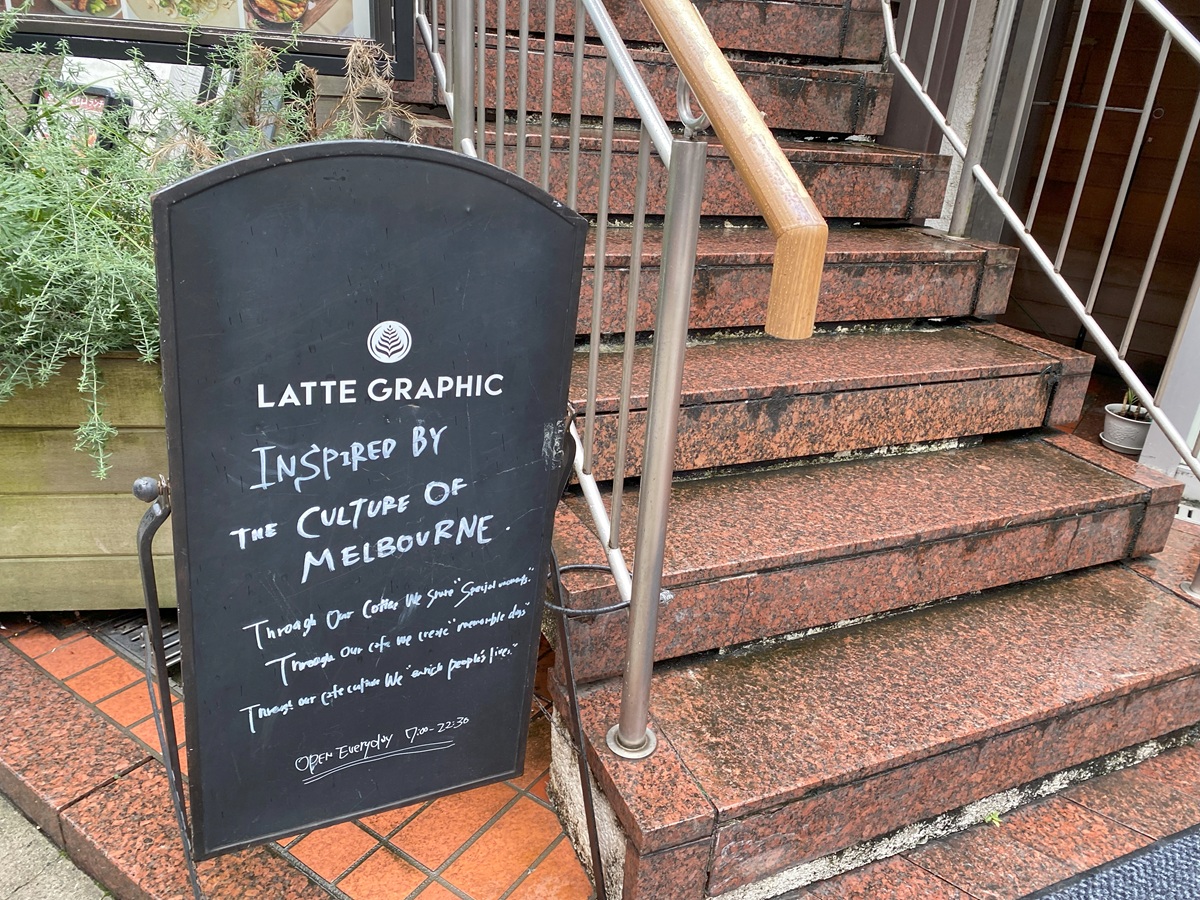 LATTE GRAPHIC
INSPIRED BY
THE CULTURE OF
MELBOURNE.
Through Our Coffee We share "Special moments."
Through Our cafe we create "memorable days"
Through our cafe culture We "enrich people's lives."
OPEN Everyday 7:00-22:30